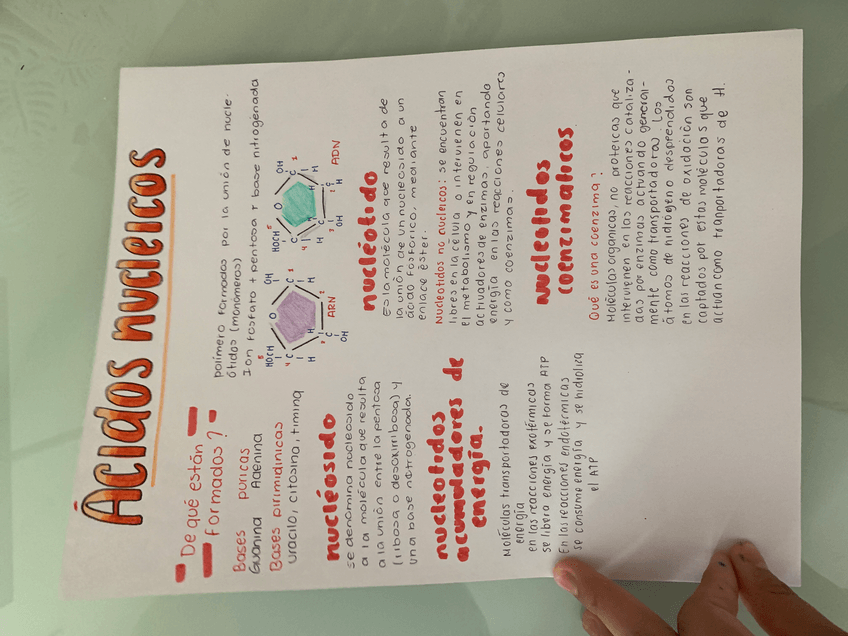 Ácidos nucleicos
De qué están
formados?
polímero formados por la unión de nucle-
ótidos (monómeros)
1 on fosfato + pentosa + base nitrogenada
Bases puricas
Guanina Adenina
Bases pirimidinicas
uracilo, citosina, timina
HOCH
5
O
OH
C
C
4
1
H
H
H
H
C
C
3
OH
ARN
HOCH
5
O
OH
C
C
4
1
H
H
H
H
C
C
3
OH
H
ADN
nucleósido
se denomina nucleosido
a la molécula que resulta
a la unión entre la pentosa
(ribosa o desoxirribosa) y
una base nitrogenada.
nucleótido
Es la molécula que resulta de
la unión de un nucleosido a un
ácido fosfórico, mediante
enlace éster.
Nucleotidos no nucleicos: se encuentran
libres en la célula o intervienen en
el metabolismo y en regulación
activadores de enzimas, aportando
energía en las reacciones celulares
y como coenzimas.
nucleotidos
acumuladores de
energía.
Moléculas transportadoras de
energía
en las reacciones exotérmicas
se libera energía y se forma ATP
En las reacciones endotérmicas
se consume energía y se hidroliza
el ATP
nucleotidos
coenzimaticos
Qué es una coenzima?
Moléculas organicas, no proteicas que
intervienen en las reacciones cataliza-
das por enzimas actuando general-
mente como transportadoras. Los
átomos de hidrogeno desprendidos
en las reacciones de oxidación son
captados por estas moléculas que
actúan como tranportadoras de H.